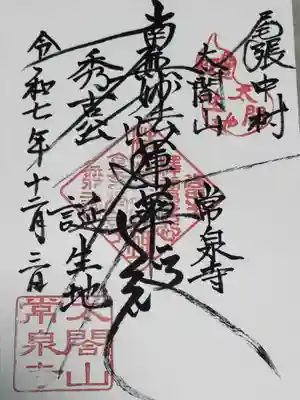 尾張中村
太閤山
常泉寺
南無妙法蓮華経
秀吉公
誕生地
令和七年十二月三日
太閤山
常泉寺